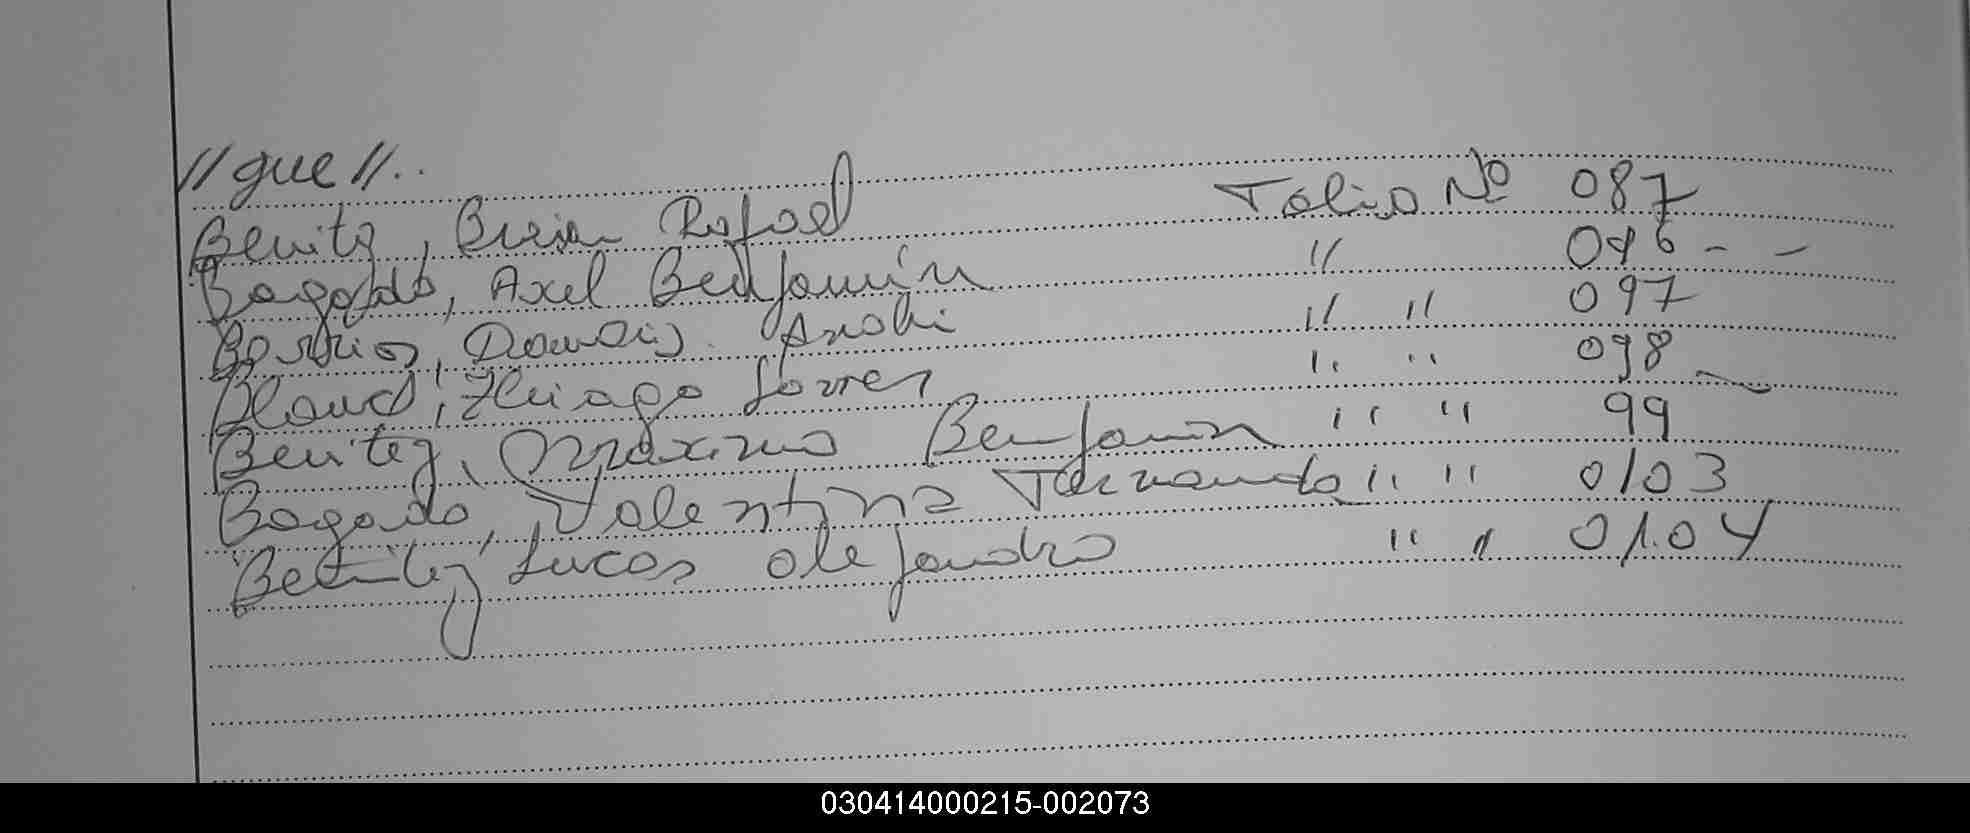 //gue//..
Benitz, Brian Rafael Folio Nº 087
Bogado, Axel Benjamín " 096 - -
Barrios, Damaris Anahi " " 097
Blanco, Thiago Javier " " 098
Benitez, Maximo Benjamin " " 99
Bogado, Valentina Fernanda " " 0103
Benitez, Lucas Alejandro " " 0104
030414000215-002073